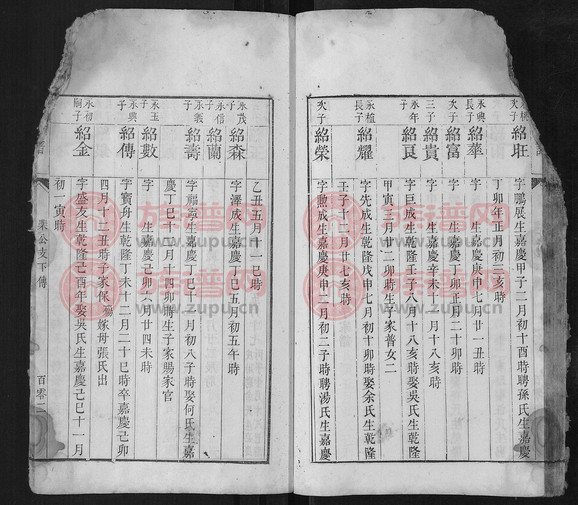 紹旺
字鵬展生嘉慶甲子二月初十酉時聘孫氏生嘉慶
丁卯年正月初三亥時
永興
長子
紹華
字 生嘉慶庚申七月廿一丑時
次子
紹富
字 生嘉慶丁卯正月二十卯時
三子
紹貴
字 生嘉慶辛未十月十八亥時
永年
子
紹良
字巨成生乾隆壬子八月十八亥時娶吳氏生乾隆
甲寅三月廿二卯時生子家普女二
永植
長子
紹耀
字先成生乾隆戊申七月初十卯時娶余氏生乾隆
壬子十二月廿七亥時
次子
紹榮
字勲成生嘉慶庚申二月初二子時聘湯氏生嘉慶
乙丑五月十一巳時
永茂
子
紹森
字澤成生嘉慶丁巳五月初五午時
永信
子
紹蘭
子
紹壽
慶丁巳十一月十四卯時生子家賜家官
永玉
子
紹數
字 生嘉慶己卯六月廿四未時
永興
子
紹傳
字寶舟生乾隆丁未十二月二十巳時卒嘉慶己卯
四月十三丑時子家保 嫁母張氏出
永初
嗣子
紹金
字盛友生乾隆己酉年娶吳氏生嘉慶己巳十一月
初一寅時
公支下傳
百零二
族普网
www.zupu.cn
族普网
www.zupu.cn